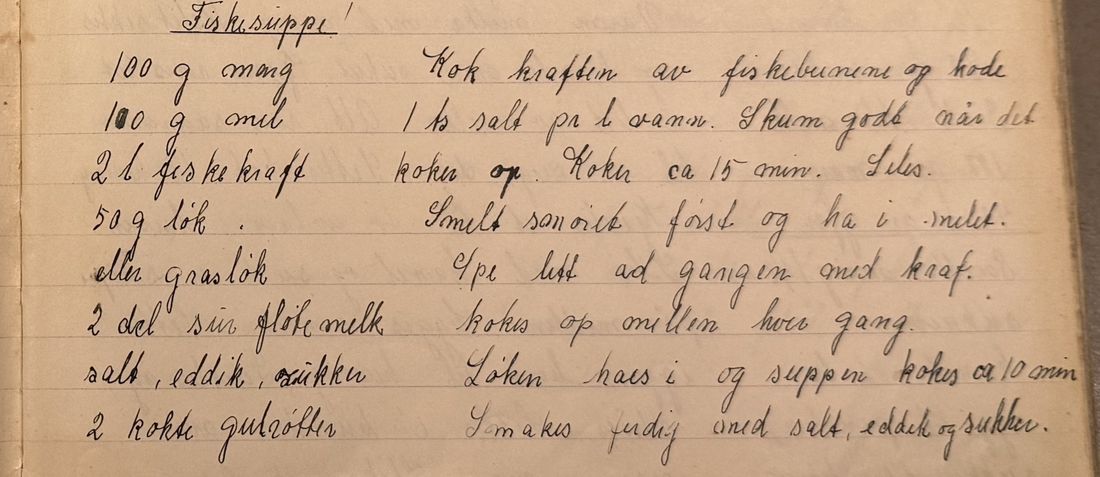 Fiskesuppe!
100 g marg Kok kraften av fiskebeinene og hode
100 g mel 1 ts salt pr l vann. Skum godt når det
2 l fiskekraft koker op. Koker ca 15 min. Siles.
50 g løk. Smelt smøret først og ha i melet.
eller grasløk Spe litt ad gangen med kraf.
2 del sur fløtemelk kokes op mellen hver gang.
salt, eddik, sukker Løken haes i og suppen kokes ca 10 min
2 kokte gulrøtter Smakes ferdig med salt, eddik og sukker.